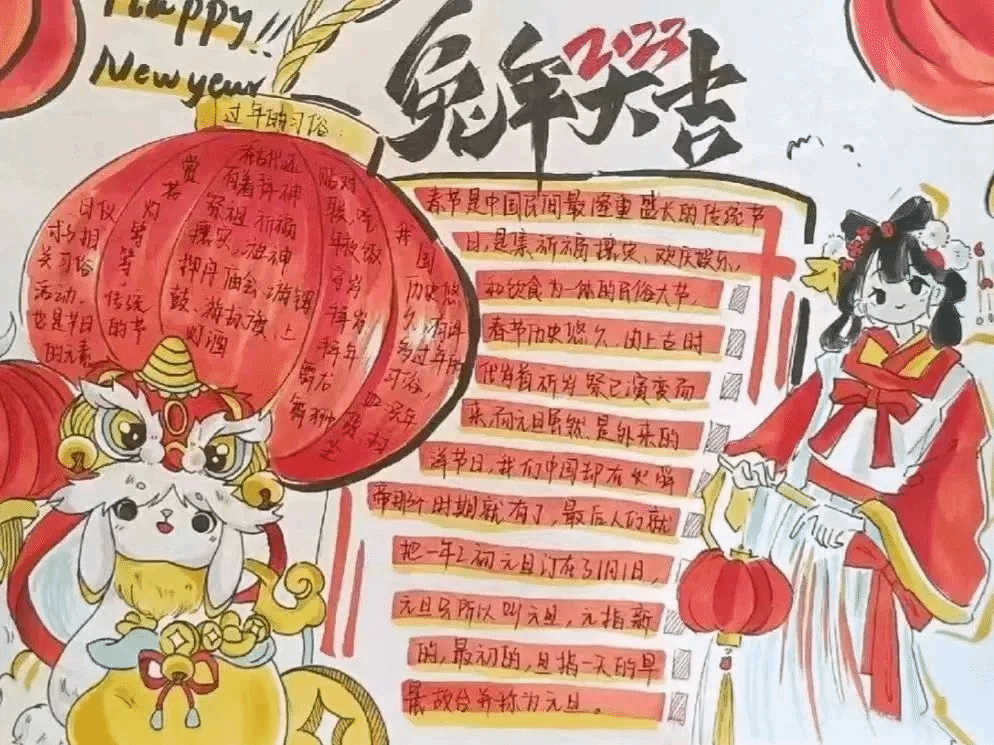 Happy!!
New year
兔年大吉
2023
过年的习俗：
我国历史悠
久，有许
多过年的
习俗，
贴对
联，吃
年夜饭
守岁
拜岁
拜年
舞龙
舞狮
在古代还
有着拜神
祭祖、祈福
攘灾、祖神
押舟、庙会、游锣
鼓、游标旗、上
灯酒
赏
灯
等
等
传统
的节
日仪
式相
关习俗
活动、
也是节日
的元素
春节是中国民间最隆重盛大的传统节
日，是集祈福攘灾、欢庆娱乐、
和饮食为一体的民俗大节，
春节历史悠久，由上古时
代岁首祈岁祭祀演变而
来，而元旦虽然是外来的
洋节日，我们中国却在
帝那个时期就有了，最后人们就
把一年之初元旦订在了1月1日，
元旦另所以叫元旦，元指新
的，最初的，旦指一天的早
晨故合并称为元旦。